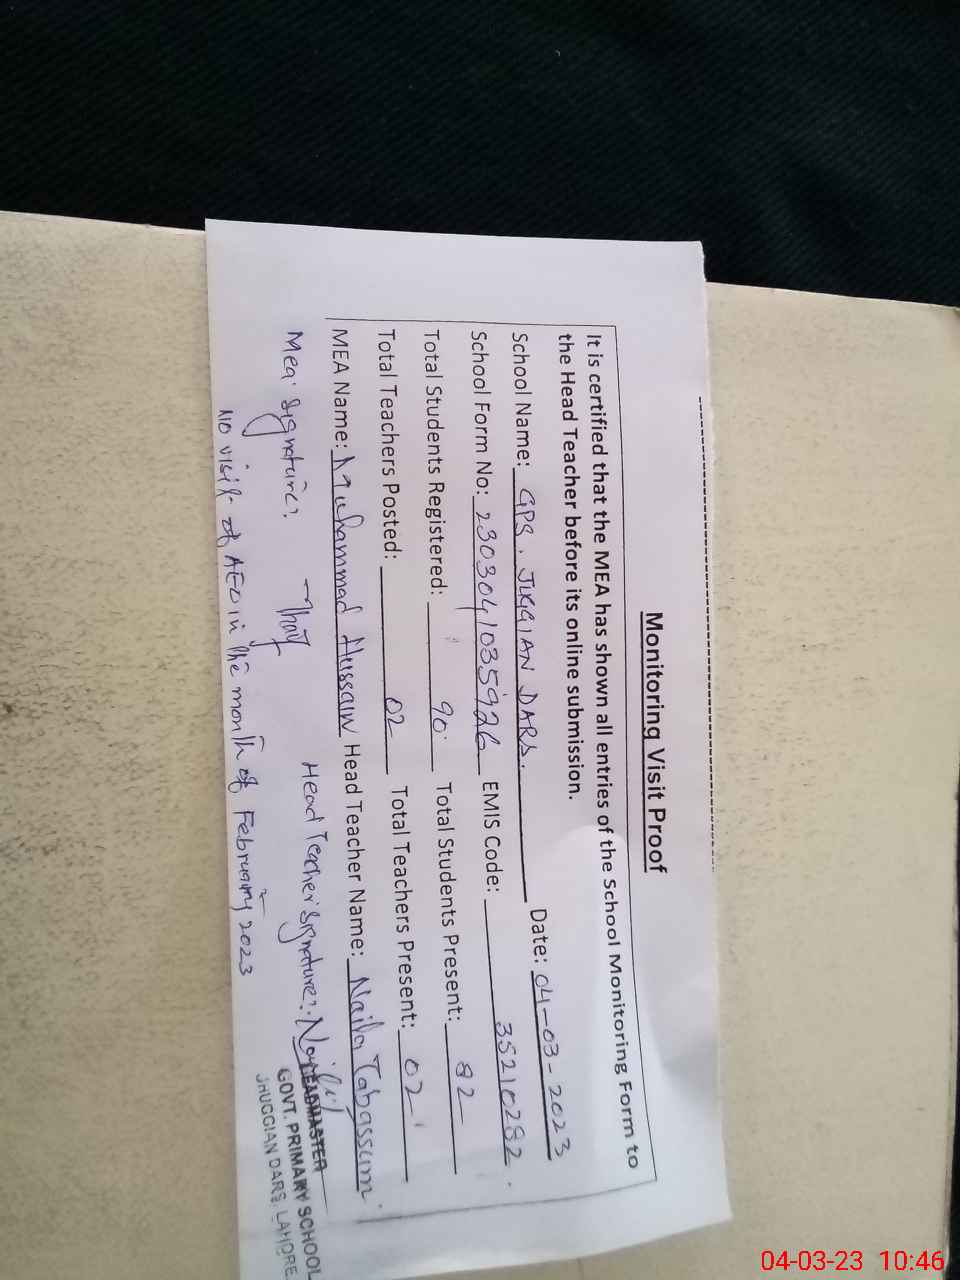 Monitoring Visit Proof
It is certified that the MEA has shown all entries of the School Monitoring Form to
the Head Teacher before its online submission.
School Name: GPS. JUGGIAN DARS. Date: 04-03-2023
School Form No: 2303041035926 EMIS Code: 35210282.
Total Students Registered: 90 Total Students Present: 82
Total Teachers Posted: 02 Total Teachers Present: 02
MEA Name: Muhammad Hussain Head Teacher Name: Naila Tabassum.
Mea. Signature: Head Teacher Signature:
HEADMASTER
GOVT. PRIMARY SCHOOL
JHUGGIAN DARS, LAHORE.
NO visit of AEO in the month of February 2023
04-03-23 10:46